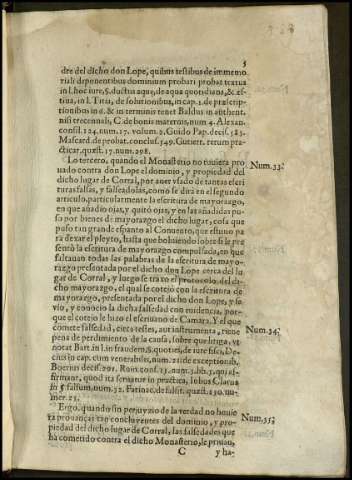 5
dre del dicho don Lope, quibus testibus de immemo
riali deponentibus dominium probari probat textus
in l. hoc iure, §. ductus aque, de aqua quotidiana, & es-
tiua, in l. Titia, de solutionibus, in cap. 1. de præscrip-
tionibus in 6. & in terminis tenet Baldus in authenti-
nisi trecennali, C. de bonis maternis, num. 4. Alexan.
consil. 124. num. 17. volum. 2. Guido Pap. decis. 583.
Mascard. de probat. conclus. 549. Gutierr. rerum pra-
cticar. quæst. 17. num. 298.
Lo tercero, quando el Monasterio no tuuiera pro
uado contra don Lope el dominio, y propiedad del
dicho lugar de Corral, por auer vsado de tantas escri
turas falsas, y falseadolas, como se dirà en el segundo
articulo, particularmente la escritura de mayorazgo,
en que añadio ojas, y quitò ojas, y en las añadidas pu-
so por bienes de mayorazgo el dicho lugar, cosa que
puso tan grande espanto al Conuento, que estuuo pa
ra dexar el pleyto, hasta que boluiendo sobre si le pre
sentò la escritura de mayorazgo compulsada, en que
faltauan todas las palabras de la escritura de mayo-
razgo presentada por el dicho don Lope cerca del lu
gar de Corral, y luego se traxo el protocolo del di-
cho mayorazgo, el qual se cotejò con la escritura de
mayorazgo, presentada por el dicho don Lope, y se
vio, y conocio la dicha falsedad con euidencia, por-
que el cotejo le hizo el escriuano de Camara. Y el que
comete falsedad, circa testes, aut instrumenta, tiene
pena de perdimiento de la causa, sobre que litiga, vt
notat Bart. in l. in fraudem, §. quoties, de iure fisci, De-
cius in cap. cum venerabilis, num. 21. de exceptionib.
Boerius decis. 291. Ruin. cons. 13. num. 3. lib. 5. qui af-
firmant, quod ita seruatur in practica, Iulius Clarus
in §. falsum, num. 32. Farinac. de falsit. quæst. 150. nu-
mer. 23.
Ergo, quando sin perjuyzio de la verdad no huuie
ra prouanças tan concluyentes del dominio, y pro-
piedad del dicho lugar de Corral, las falsedades que
ha cometido contra el dicho Monasterio, le priuan,
C y ha-
Num. 33.
Num. 34.
Num. 35.